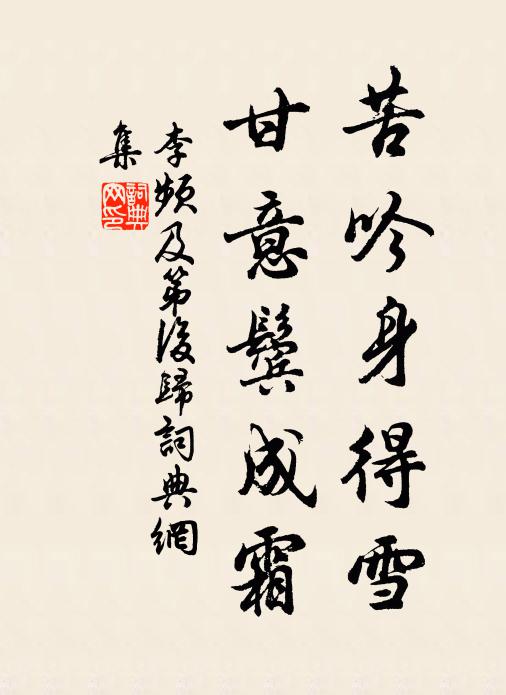 苦吟身得雪
甘意鬓成霜
李频及第後歸詞典網
集
詞典
网印